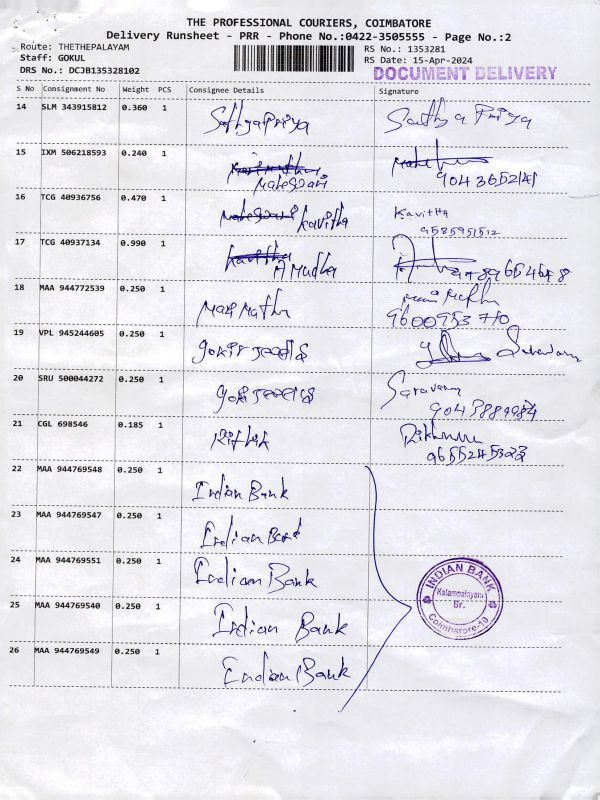 THE PROFESSIONAL COURIERS, COIMBATORE
Delivery Runsheet - PRR - Phone No.:0422-3505555 - Page No.:2
Route: THETHEPALAYAM
Staff: GOKUL
DRS No.: DCJB135328102
RS No.: 1353281
RS Date: 15-Apr-2024
DOCUMENT DELIVERY
S No Consignment No Weight PCS Consignee Details Signature
14 SLM 343915812 0.360 1 Sathyapriya Sathya Priya
15 IXM 506218593 0.240 1
Maheswari
16 TCG 40936756 0.470 1 Kavitha Kavitha
9585951512
17 TCG 40937134 0.990 1 Kavitha
Amudha
18 MAA 944772539 0.250 1 Mari Muthu
9600953710
19 VPL 945244605 0.250 1
20 SRU 500044272 0.250 1 Saravana
21 CGL 698546 0.185 1
9655245323
22 MAA 944769548 0.250 1 Indian Bank
23 MAA 944769547 0.250 1 Indian Bank
24 MAA 944769551 0.250 1 Indian Bank
25 MAA 944769540 0.250 1 Indian Bank
26 MAA 944769549 0.250 1 Indian Bank
INDIAN BANK
Kalampalayam
Br.
Coimbatore-10